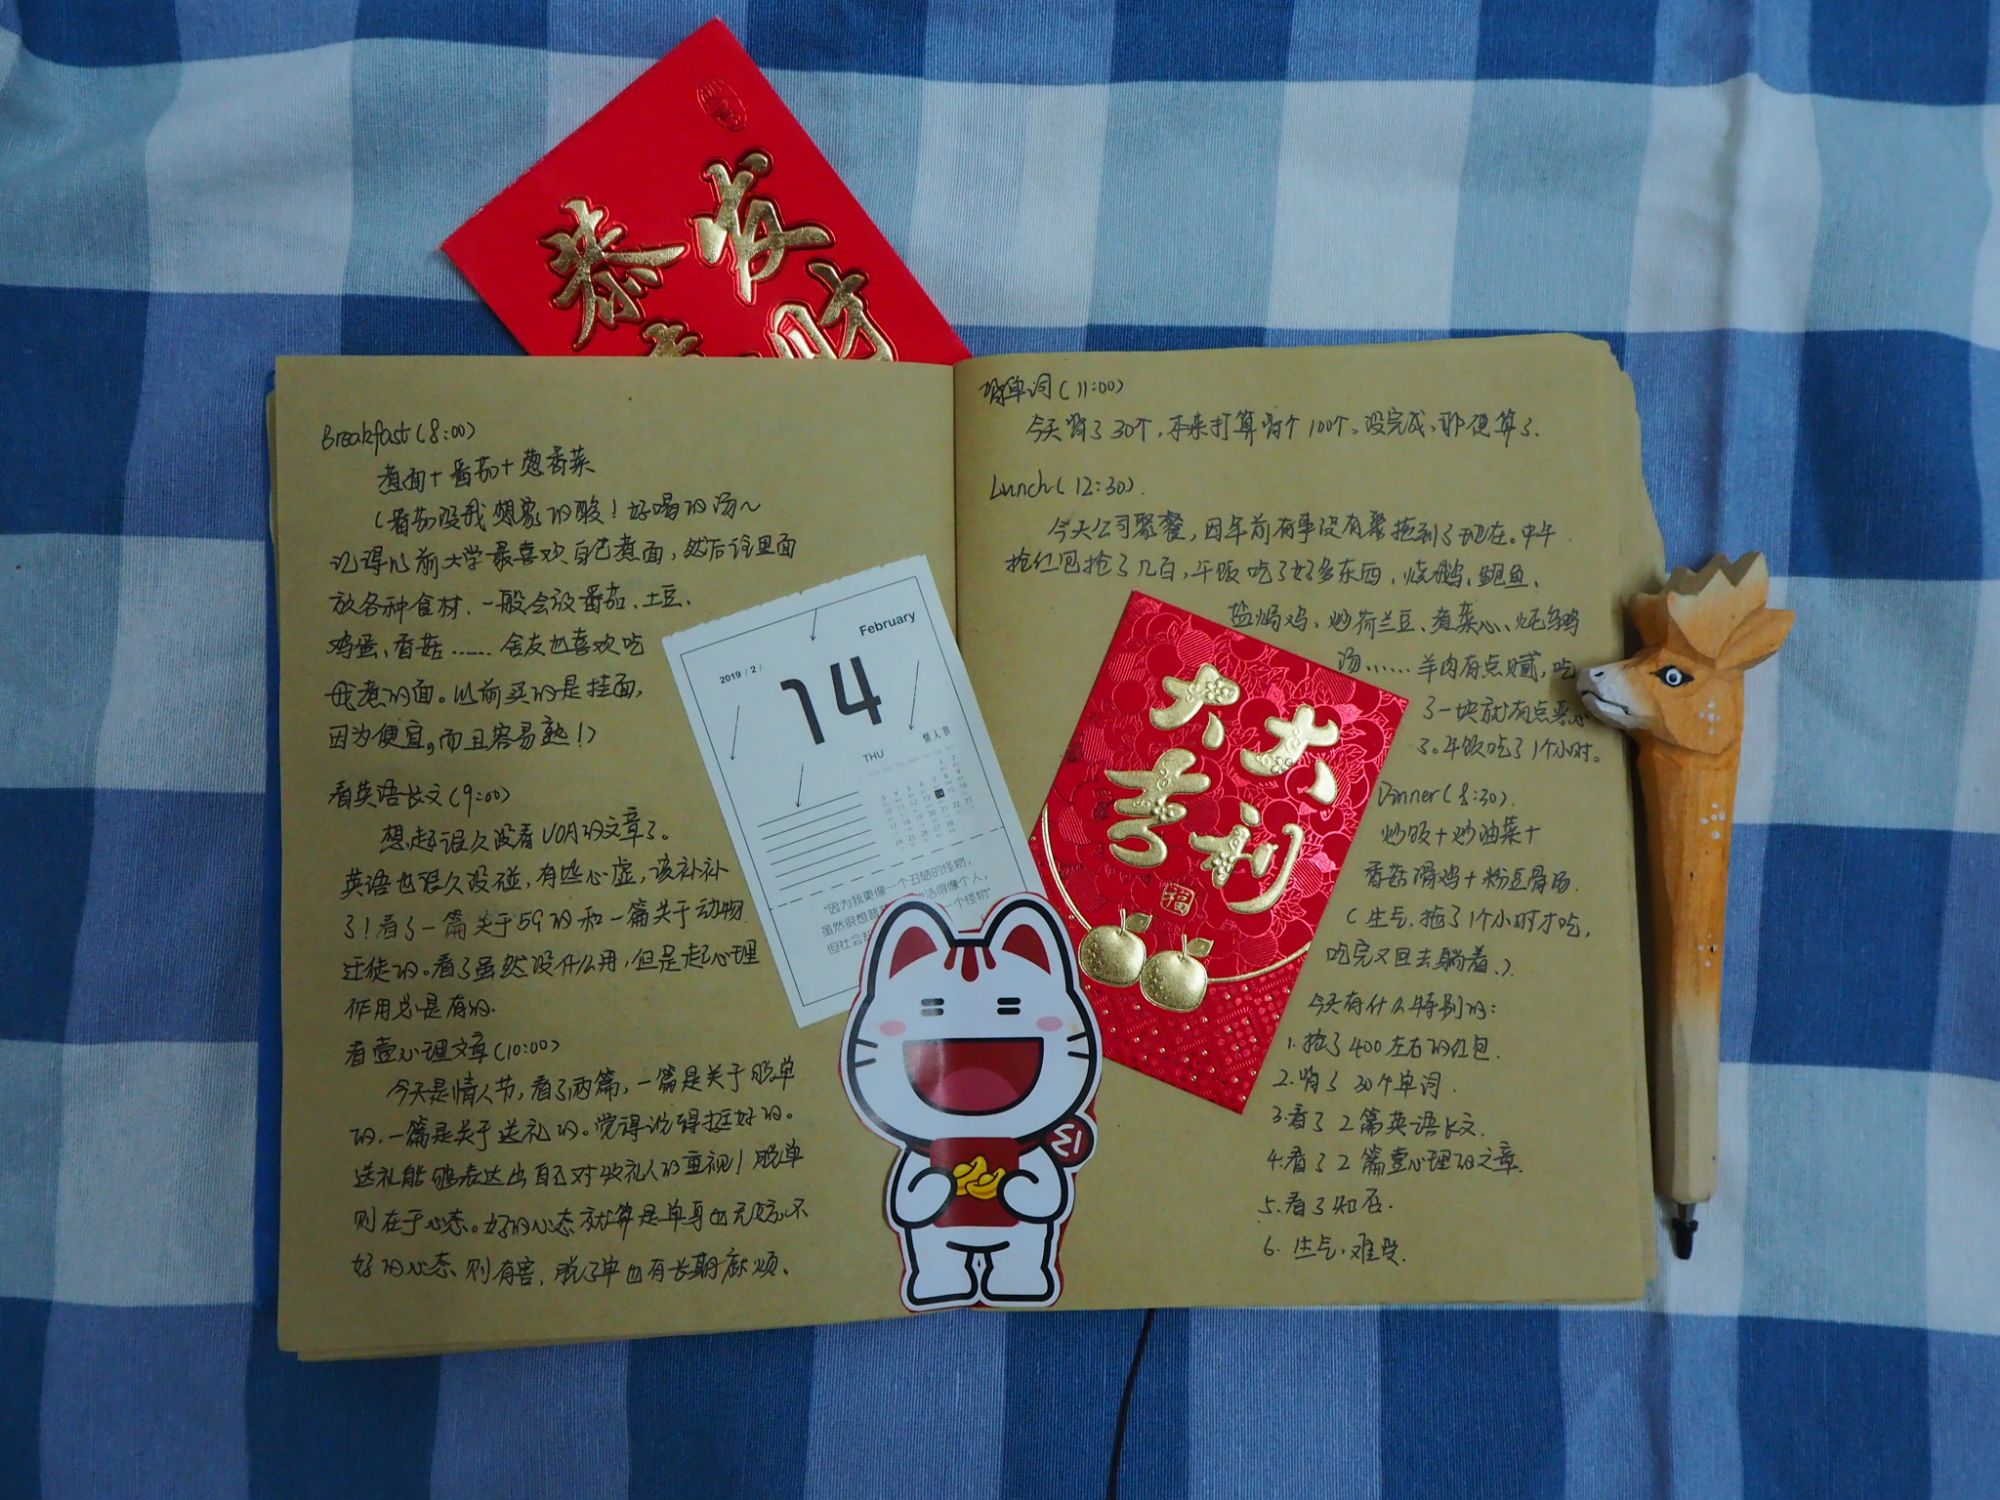 恭
发
财
Breakfast(8:00)
煮面+番茄+葱香菜
(番茄没我想象的酸!好喝的汤~
记得以前大学最喜欢自己煮面,然后往里面
放各种食材.一般会放番茄、土豆、
鸡蛋、香菇……舍友也喜欢吃
我煮的面。以前买的是挂面,
因为便宜,而且容易熟!)
看英语长文(9:00)
想起很久没看VOA的文章了。
英语也很久没碰,有些心虚,该补补
了!看了一篇关于5G的和一篇关于动物
迁徙的。看了虽然没什么用,但是起心理
作用总是有的.
看壹心理文章(10:00)
今天是情人节,看了两篇,一篇是关于脱单
的,一篇是关于送礼的。觉得说得挺好的。
送礼能够表达出自己对收礼人的重视!脱单
则在于心态。好的心态就算是单身也无妨,不
好的心态则有害,脱了单也有长期麻烦、
2019 / 2 /
February
14
THU
情人节
"因为我更像一个丑陋的怪物,
活得像个人,
一个怪物"
但社会
背单词(11:00)
今天背了30个,本来打算背个100个。没完成,那便算了.
Lunch(12:30).
今天公司聚餐,因年前有事没有聚拖到了现在。中午
抢红包抢了几百,午饭吃了好多东西,烧鹅、鲍鱼、
盐焗鸡、炒荷兰豆、煮菜心、炖乌鸡
汤……羊肉有点腻,吃
了一块就有点恶心
了。午饭吃了1个小时。
大吉
大利
福
Dinner(8:30).
炒饭+炒油菜+
香菇滑鸡+粉豆骨汤.
(生气,拖了1个小时才吃,
吃完又回去躺着.)
今天有什么特别的:
1.抢了400左右的红包.
2.背了30个单词.
3.看了2篇英语长文.
4.看了2篇壹心理的文章.
5.看了知否.
6.生气,难受.